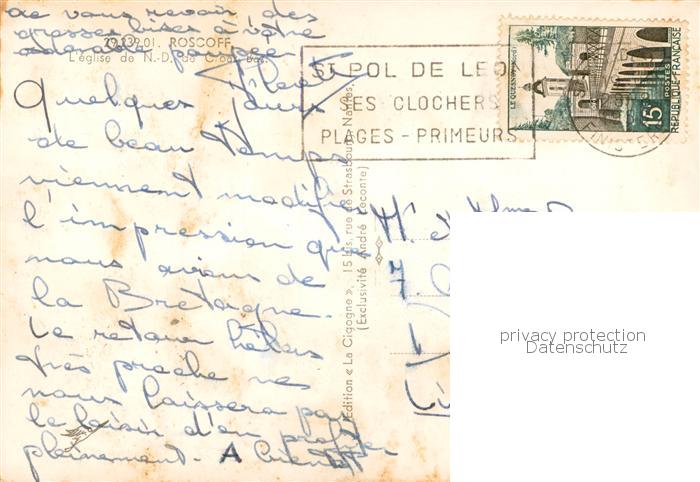 de vous revoir des
grosses bises à votre
adorable poupée
29.239.01. ROSCOFF
L'église de N.-D. de Croaz-Baz.
Quelques jours
de beau temps
viennent modifier
l'impression que
nous avions de
la Bretagne.
Le retour hélas
très proche ne
nous laissera pas
le loisir d'en profiter
pleinement. A bientôt
Edition « La Cigogne », 15 bis, rue de Strasbourg, Nantes
(Exclusivité André Leconte)
ST POL DE LEON
SES CLOCHERS
PLAGES - PRIMEURS
LE QUESNOY (Nord)
15F
POSTES
REPUBLIQUE FRANÇAISE
FINISTERE
Mr et Mme
privacy protection
Datenschutz